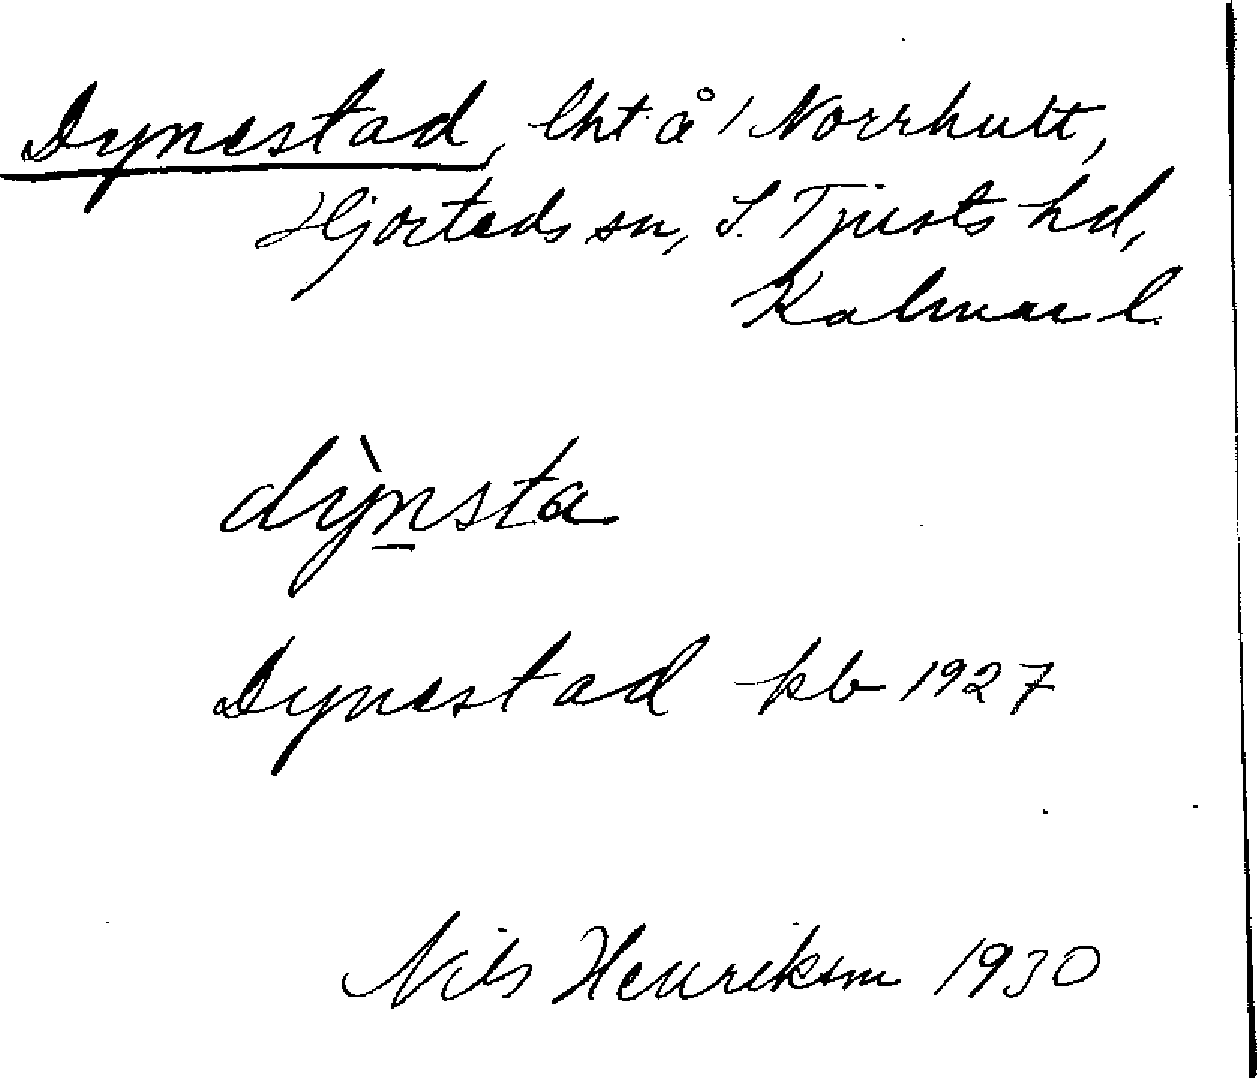 Dynestad, lht å 1 Norrhult,
Hjorteds sn, S. Tjusts hd,
Kalmar l.
dy̆̀n̲sta
Dynestad kb 1927
Nils Henriksm 1930